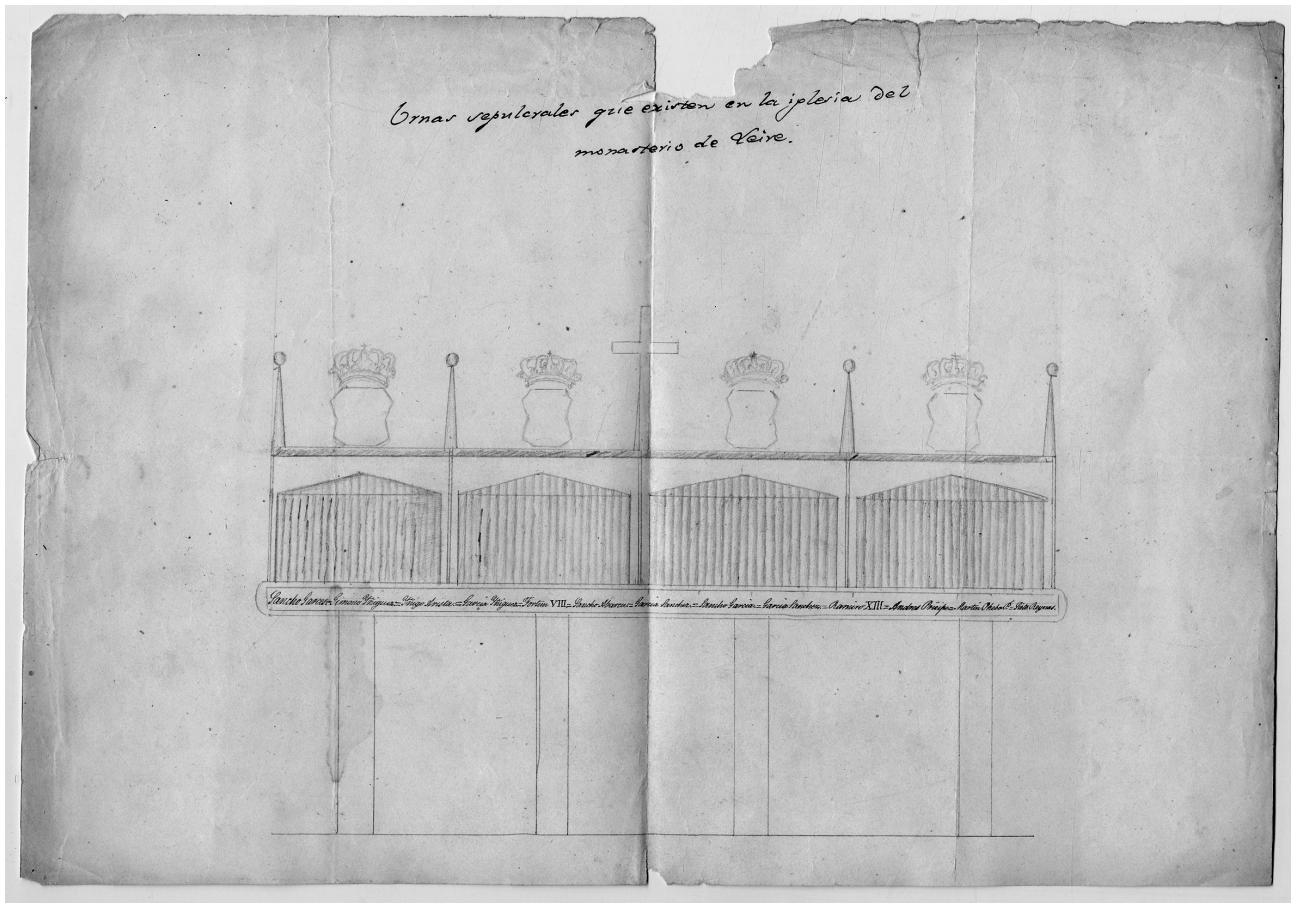 Urnas sepulcrales que existen en la iglesia del
monasterio de Leire.
Sancho Garces = Gimeno Yñiguez = Yñigo Arista = Garcia Yñiguez = Fortun VIII = Sancho Abarca = Garcia Sanchez = Sancho Garcia = Garcia Sanchez = Ramiro XIII = Andres Principe = Martin Phebo P. = Siete Reynas.